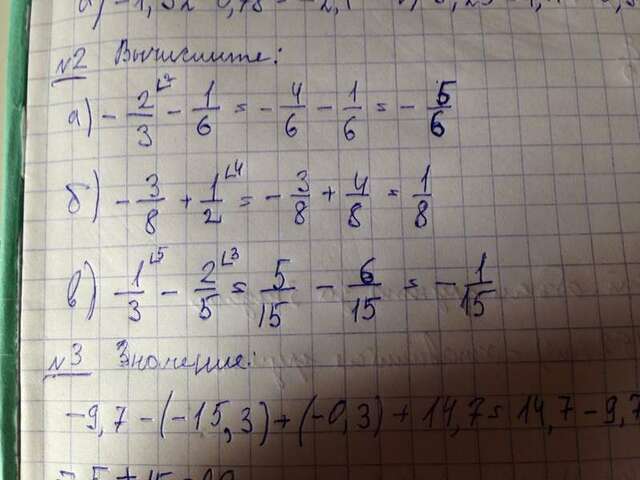 а) -1,32
№2 Вычислите:
а) - 2/3 ⌊2 - 1/6 = - 4/6 - 1/6 = - 5/6
б) - 3/8 + 1/2 ⌊4 = - 3/8 + 4/8 = 1/8
в) 1/3 ⌊5 - 2/5 ⌊3 = 5/15 - 6/15 = - 1/15
№3 Значение:
-9,7 - (-15,3) + (-0,3) + 14,7 = 14,7 - 9,7